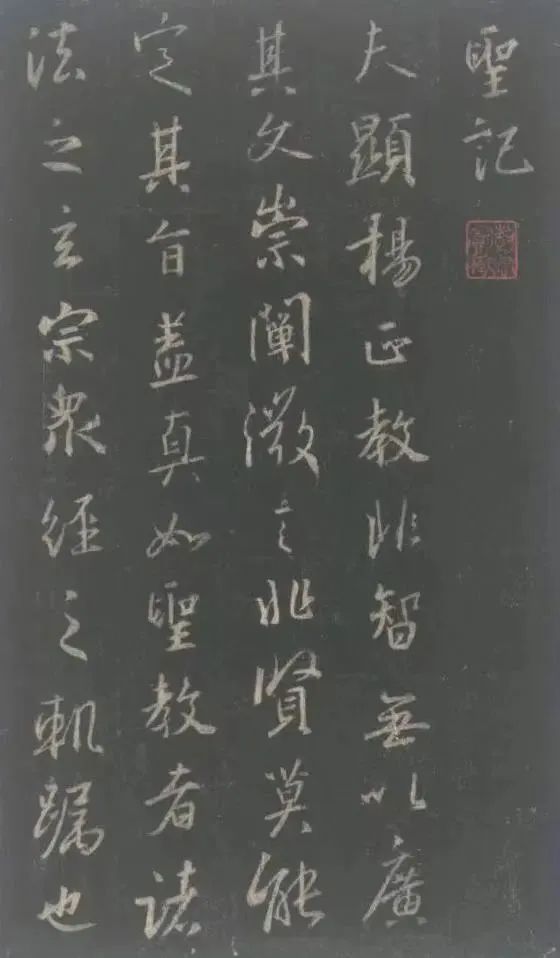 聖記
夫顯揚正教非智無以廣
其文崇闡微言非賢莫能
定其旨蓋真如聖教者諸
法之玄宗眾經之軌躅也